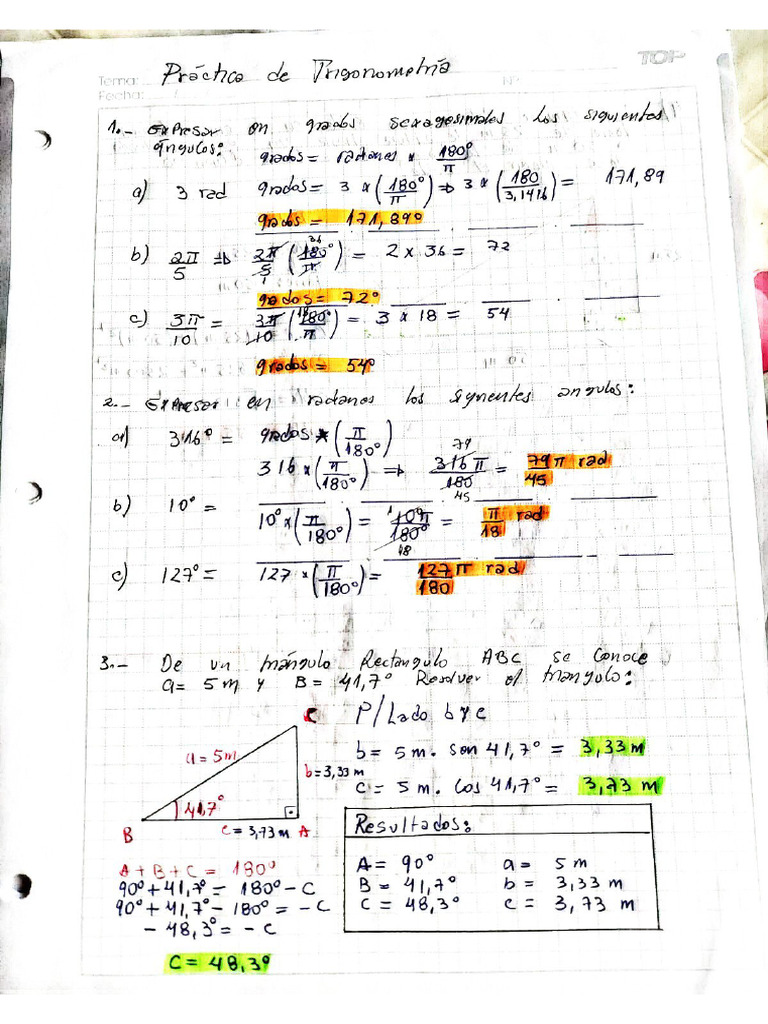 TOP
Tema: Práctica de Trigonometría
Nº
Fecha:
1.- Expresar en grados sexagesimales los siguientes
ángulos:
grados = radianes × 180°/π
a) 3 rad grados = 3 × (180°/π) ⇒ 3 × (180/3,1416) = 171,89
grados = 171,89°
b) 2π/5 ⇒ 2π/5 (180°/π) = 2 × 36 = 72
36
1
grados = 72°
c) 3π/10 = 3π/10 (180°/π) = 3 × 18 = 54
18
grados = 54°
2.- Expresar en radanos los siguientes angulos:
a) 316° = grados × (π/180°)
316 × (π/180°) ⇒ 316π/180 = 79π/45 rad
79
45
b) 10° = 10° × (π/180°) = 10°π/180° = π/18 rad
1
18
c) 127° = 127 × (π/180°) = 127π/180 rad
3.- De un triángulo Rectangulo ABC se conoce
a = 5 m y B = 41,7° Resolver el triangulo:
C
P/Lado b y c
a = 5m
b = 3,33 m
b = 5 m. sen 41,7° = 3,33 m
c = 5 m. cos 41,7° = 3,73 m
41,7°
B
c = 3,73 m A
Resultados:
A = 90° a = 5 m
B = 41,7° b = 3,33 m
C = 48,3° c = 3,73 m
A + B + C = 180°
90° + 41,7° = 180° - C
90° + 41,7° - 180° = - C
- 48,3° = - C
C = 48,3°